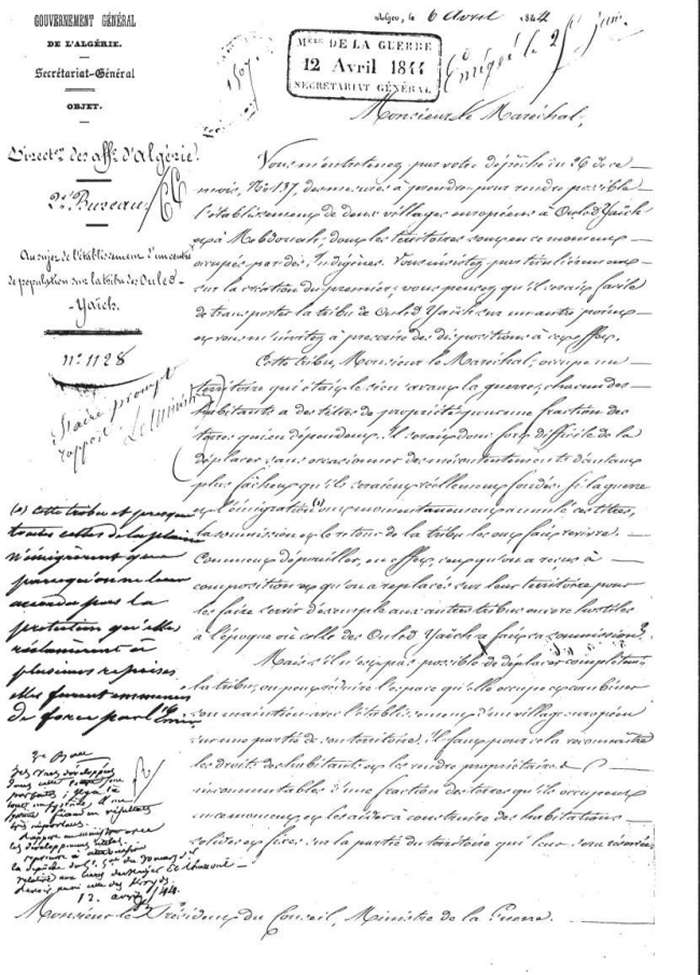 GOUVERNEMENT GÉNÉRAL
DE L'ALGÉRIE.
Secrétariat-Général
OBJET.
Direct.on des aff.res d'Algérie.
2e Bureau
Au sujet de l'établissement d'un centre
de population sur la tribu des Ouled-
Yaïch.
n° 1128
Faire prompt
rapport
Le ministre
Alger, le 6 Avril 1844
1507
Mtère DE LA GUERRE
12 Avril 1844
SECRÉTARIAT GÉNÉRAL
Enrégé le 2
Monsieur le Maréchal,
Vous m'entretenez, par votre dépêche du 26 de ce
mois, N° 137, des mesures à prendre pour rendre possible
l'établissement de deux villages européens à Ouled Yaïch
et à Mebdouah, dont les territoires sont en ce moment
occupés par des Indigènes. Vous insistez particulièrement
sur la création du premier; vous pensez qu'il serait facile
de transporter la tribu de Ouled Yaïch sur un autre point
et vous m'invitez à prescrire des dispositions à cet effet.
Cette tribu, Monsieur le Maréchal, occupe un
territoire qui était le sien avant la guerre; chacun des
habitants a des titres de propriété pour une fraction des
terres qui en dépendent. Il serait donc fort difficile de la
déplacer sans occasionner des mécontentements d'autant
plus fâcheux qu'ils seraient réellement fondés. Si la guerre
et l'émigration (a) ont momentanément annulé ces titres,
la soumission et le retour de la tribu les ont fait revivre.
Comment dépouiller, en effet, ceux qu'on a reçus à
composition et qu'on a replacés sur leur territoire pour
les faire servir d'exemple aux autres tribus encore hostiles
à l'époque où celle des Ouled Yaïch a fait sa soumission?
Mais s'il n'est pas possible de déplacer complètement
la tribu, on peut réduire l'espace qu'elle occupe et combiner
son maintien avec l'établissement d'un village européen
sur une partie de son territoire. Il faut pour cela reconnaître
les droits des habitants et les rendre propriétaires
incommutables d'une fraction des terres qu'ils occupent
en ce moment et les aider à construire des habitations
solides et fixes sur la partie du territoire qui leur sera réservée
(a) cette tribu et presque
toutes celles de la plaine
n'émigrèrent que
parcequ'on ne leur
accorda pas la
protection qu'elles
réclamèrent à
plusieurs reprises
elles furent emmenées
de force par l'Emir
2e Bureau
Les vues développées
dans cette lettre
résultats
très importans.
Rapport au ministre avec
les développemens
la dépêche du
12. avril 1844.
Monsieur le Président du Conseil, Ministre de la Guerre.